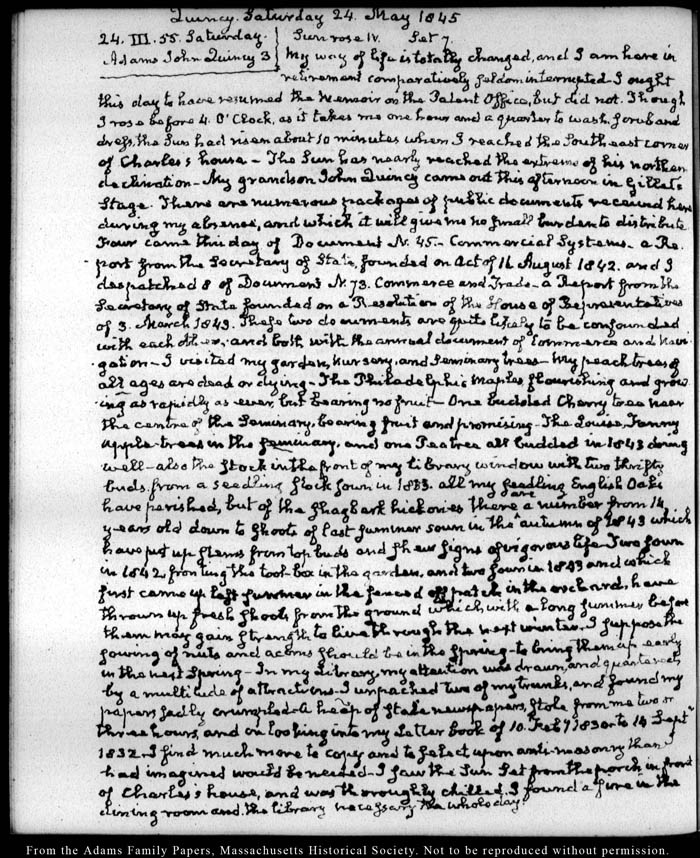 Quincy. Saturday 24. May 1845
24. III. 55. Saturday. Sun rose IV. Set 7.
Adams John Quincy 3 My way of life is totally changed, and I am here in
retirement comparatively seldom interrupted. I ought
this day to have resumed the Memoir on the Patent Office, but did not. Though
I rose before 4. O'Clock, as it takes me one hour and a quarter to wash, scrub and
dress, the Sun had risen about 10 minutes when I reached the South east corner
of Charles's house. — The Sun has nearly reached the extreme of his northern
declination — My grandson John Quincy came out this afternoon in Gillet's
Stage. There are numerous packages of public documents received here
during my absence, and which it will give me no small burden to distribute
Four came this day of Document N. 45 — Commercial Systems — a Re-
port from the Secretary of State, founded on Act of 16 August 1842. and I
despatched 8 of Document N. 73. Commerce and Trade — a Report from the
Secretary of State founded on a Resolution of the House of Representatives
of 3. March 1843. These two documents are quite likely to be confounded
with each other, and both with the annual document of Commerce and Navi-
gation — I visited my garden, Nursery, and Seminary trees — My peach trees of
all ages are dead or dying — The Philadelphia Maples flourishing and grow-
ing as rapidly as ever, but bearing no fruit — One budded Cherry tree near
the centre of the Seminary, bearing fruit and promising — The Louisa, Fanny
apple-trees in the Seminary, and one Peatree all budded in 1843 doing
well — also the Stock in the front of my library window with two thrifty
buds, from a seedling Stock sown in 1833. all my seedling English Oaks
have perished, but of the shagbark hickories there are a number from 14
years old down to shoots of last summer sown in the autumn of 1843 which
have put up stems from top buds and shew signs of vigorous life. Two sown
in 1842, fronting the tool-box in the garden, and two sown in 1843 and which
first came up last summer in the fenced off patch in the orchard, have
thrown up fresh shoots from the ground which, with a long summer before
them may gain strength to live through the next winter. I suppose the
sowing of nuts and acorns should be in the Spring — to bring them up early
in the next Spring — In my Library, my attention was drawn, and quartered
by a multitude of attractions. I unpacked two of my trunks, and found my
papers sadly crumpled. A heap of stale newspapers, stole from me two or
three hours, and on looking into my Letter book of 10. Feby 1830 to 14 Septr
1832. I find much more to copy and to select upon anti-masonry than I
had imagined would be needed. I saw the Sun Set from the porch in front
of Charles's house, and was thoroughly chilled. I found a fire in the
dining room and the library necessary the whole day.
From the Adams Family Papers, Massachusetts Historical Society. Not to be reproduced without permission.